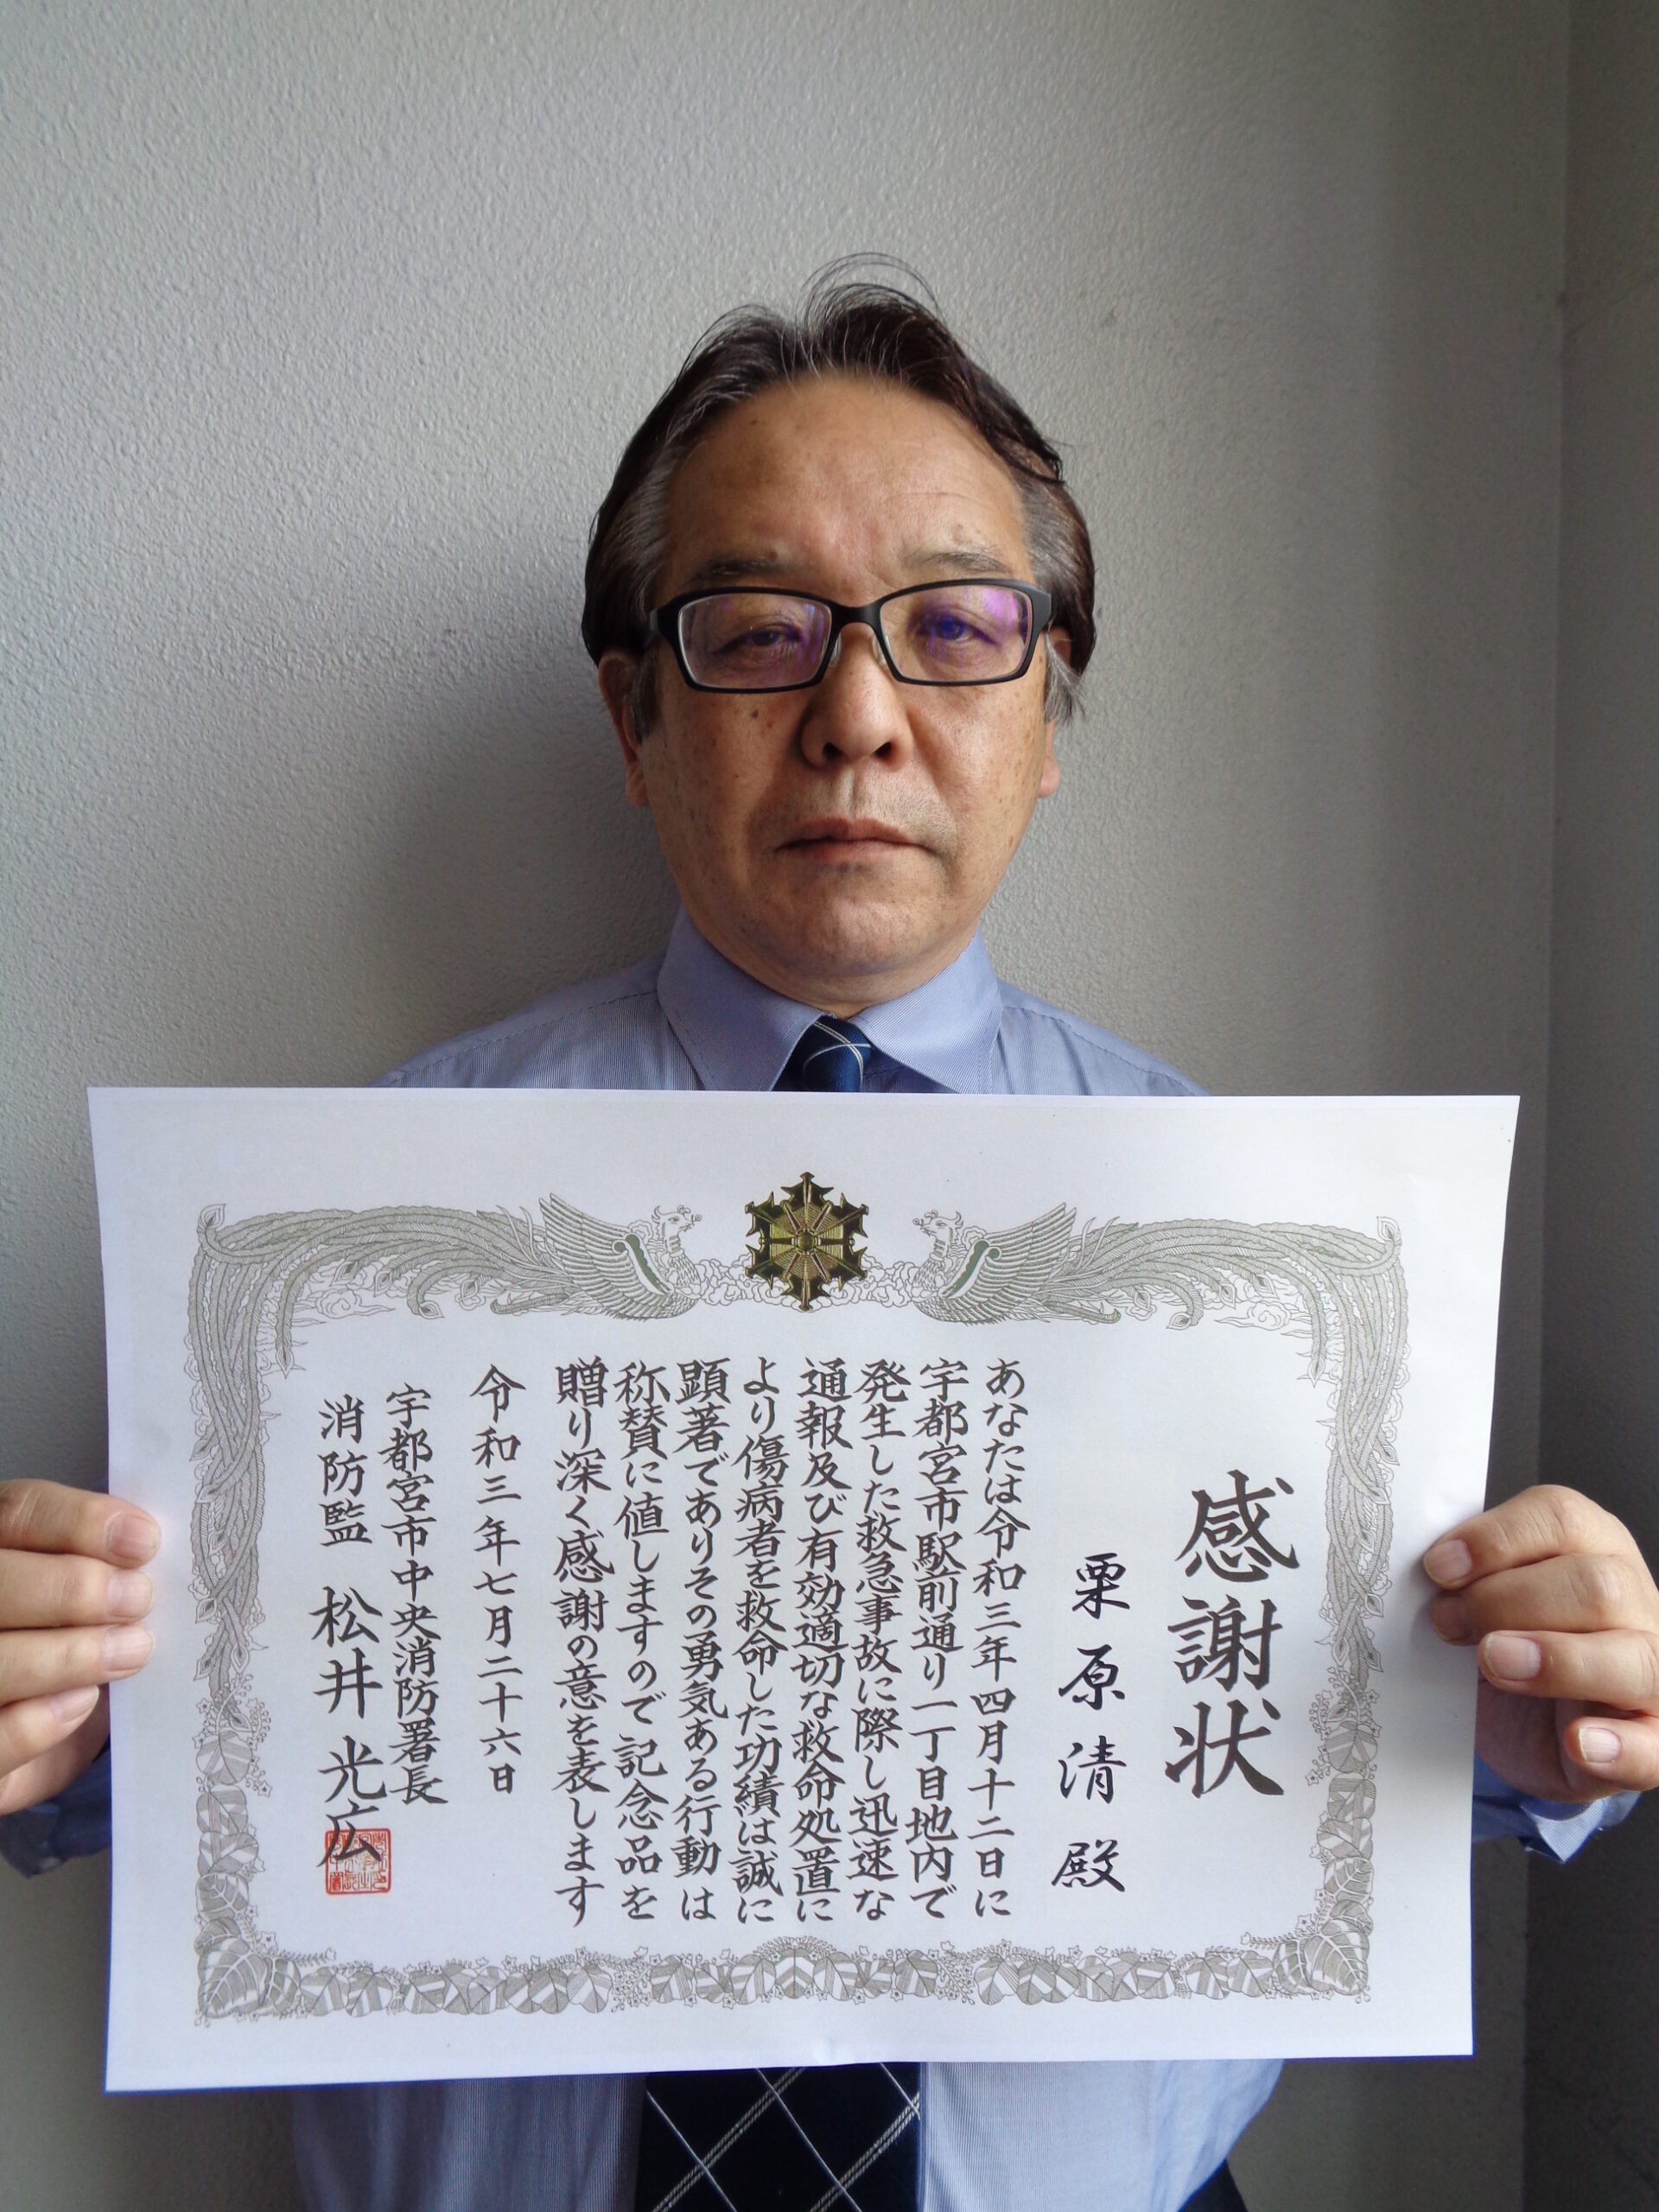 感謝状
栗原清殿
あなたは令和三年四月十二日に
宇都宮市駅前通り一丁目地内で
発生した救急事故に際し迅速な
通報及び有効適切な救命処置に
より傷病者を救命した功績は誠に
顕著でありその勇気ある行動は
称賛に値しますので記念品を
贈り深く感謝の意を表します
令和三年七月二十六日
宇都宮市中央消防署長
消防監 松井光広